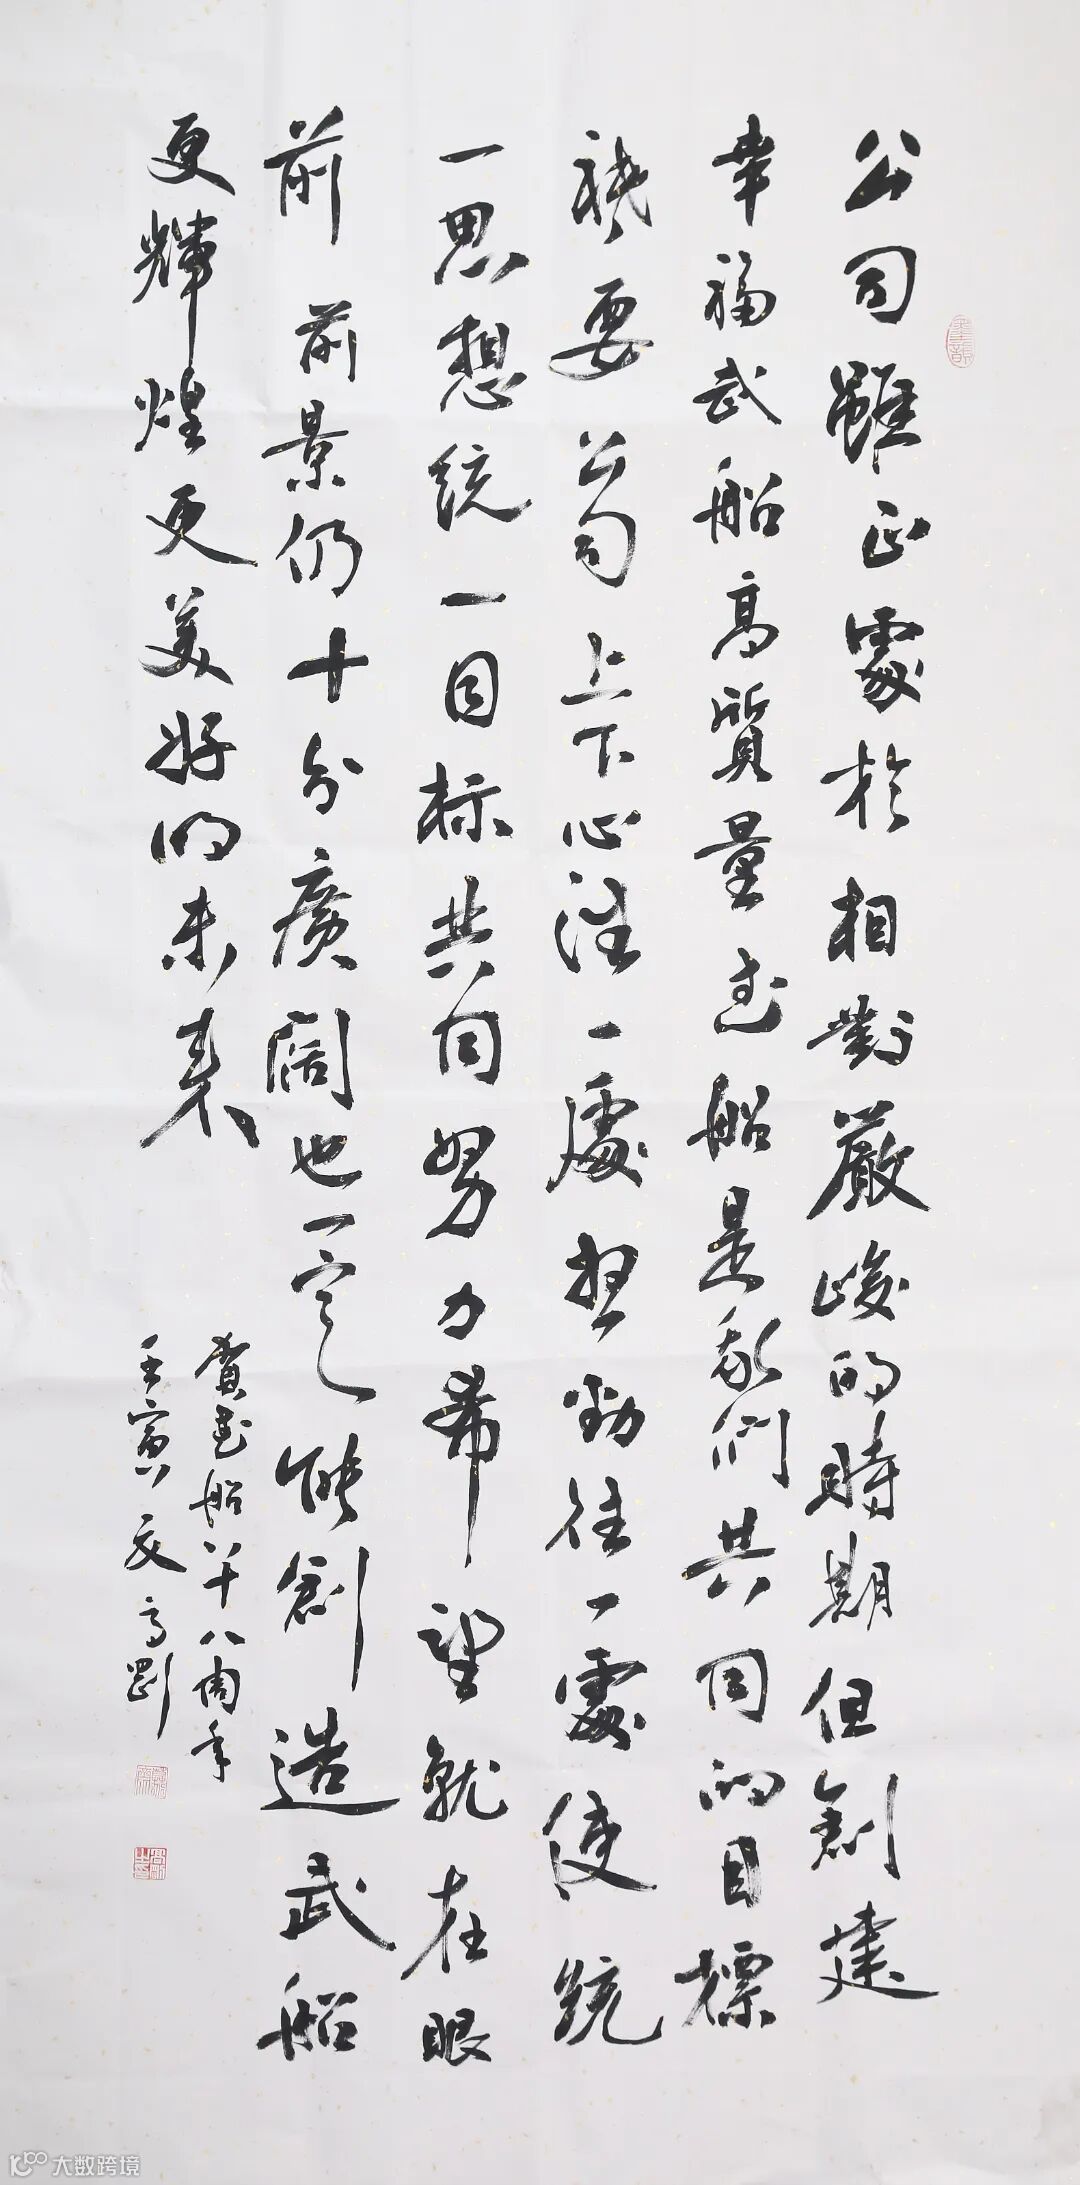 公司雖正處於相對嚴峻的時期但創建
幸福武船高質量武船是我們共同的目標
祗要公司上下心往一處想勁往一處使統
一思想統一目标共同努力希望就在眼
前 前景仍十分廣闊也一定能創造武船
更輝煌更美好的未来
賀武船八十八周年
壬寅夏高剛
大数跨境